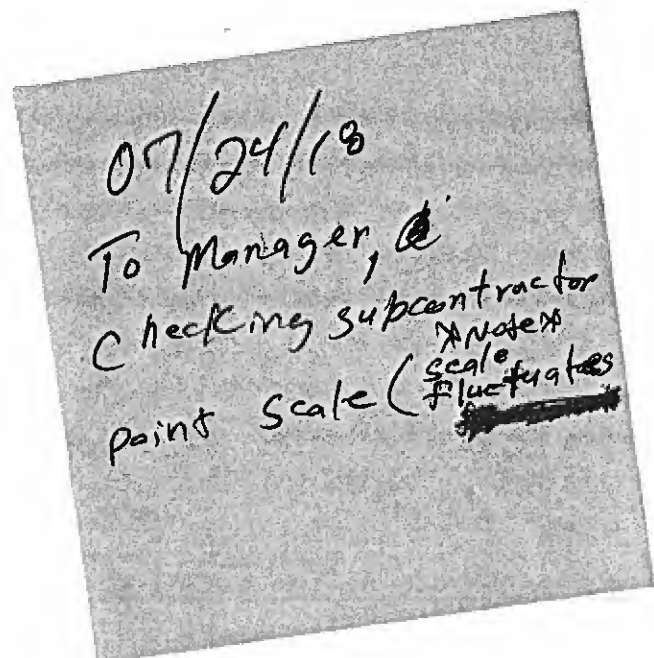 07/24/18
To Manager,
Checking subcontractor
*Note*
point scale ( scale
fluctuates